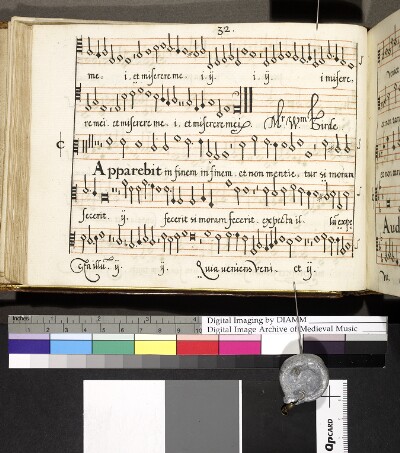 32.
me. i. et miserere me. i. ij. i. ij. i misere,
re mei. et miserere me. i. et miserere mei. Mr. W. Birde.
C
Apparebit in finem in finem. et non mentie. tur si moram
fecerit. ij. fecerit si moram fecerit. expecta il.
ij. ij. Quia veniens veni. et ij.
Inches
Digital Imaging by DIAMM
Digital Image Archive of Medieval Music
QPCARD